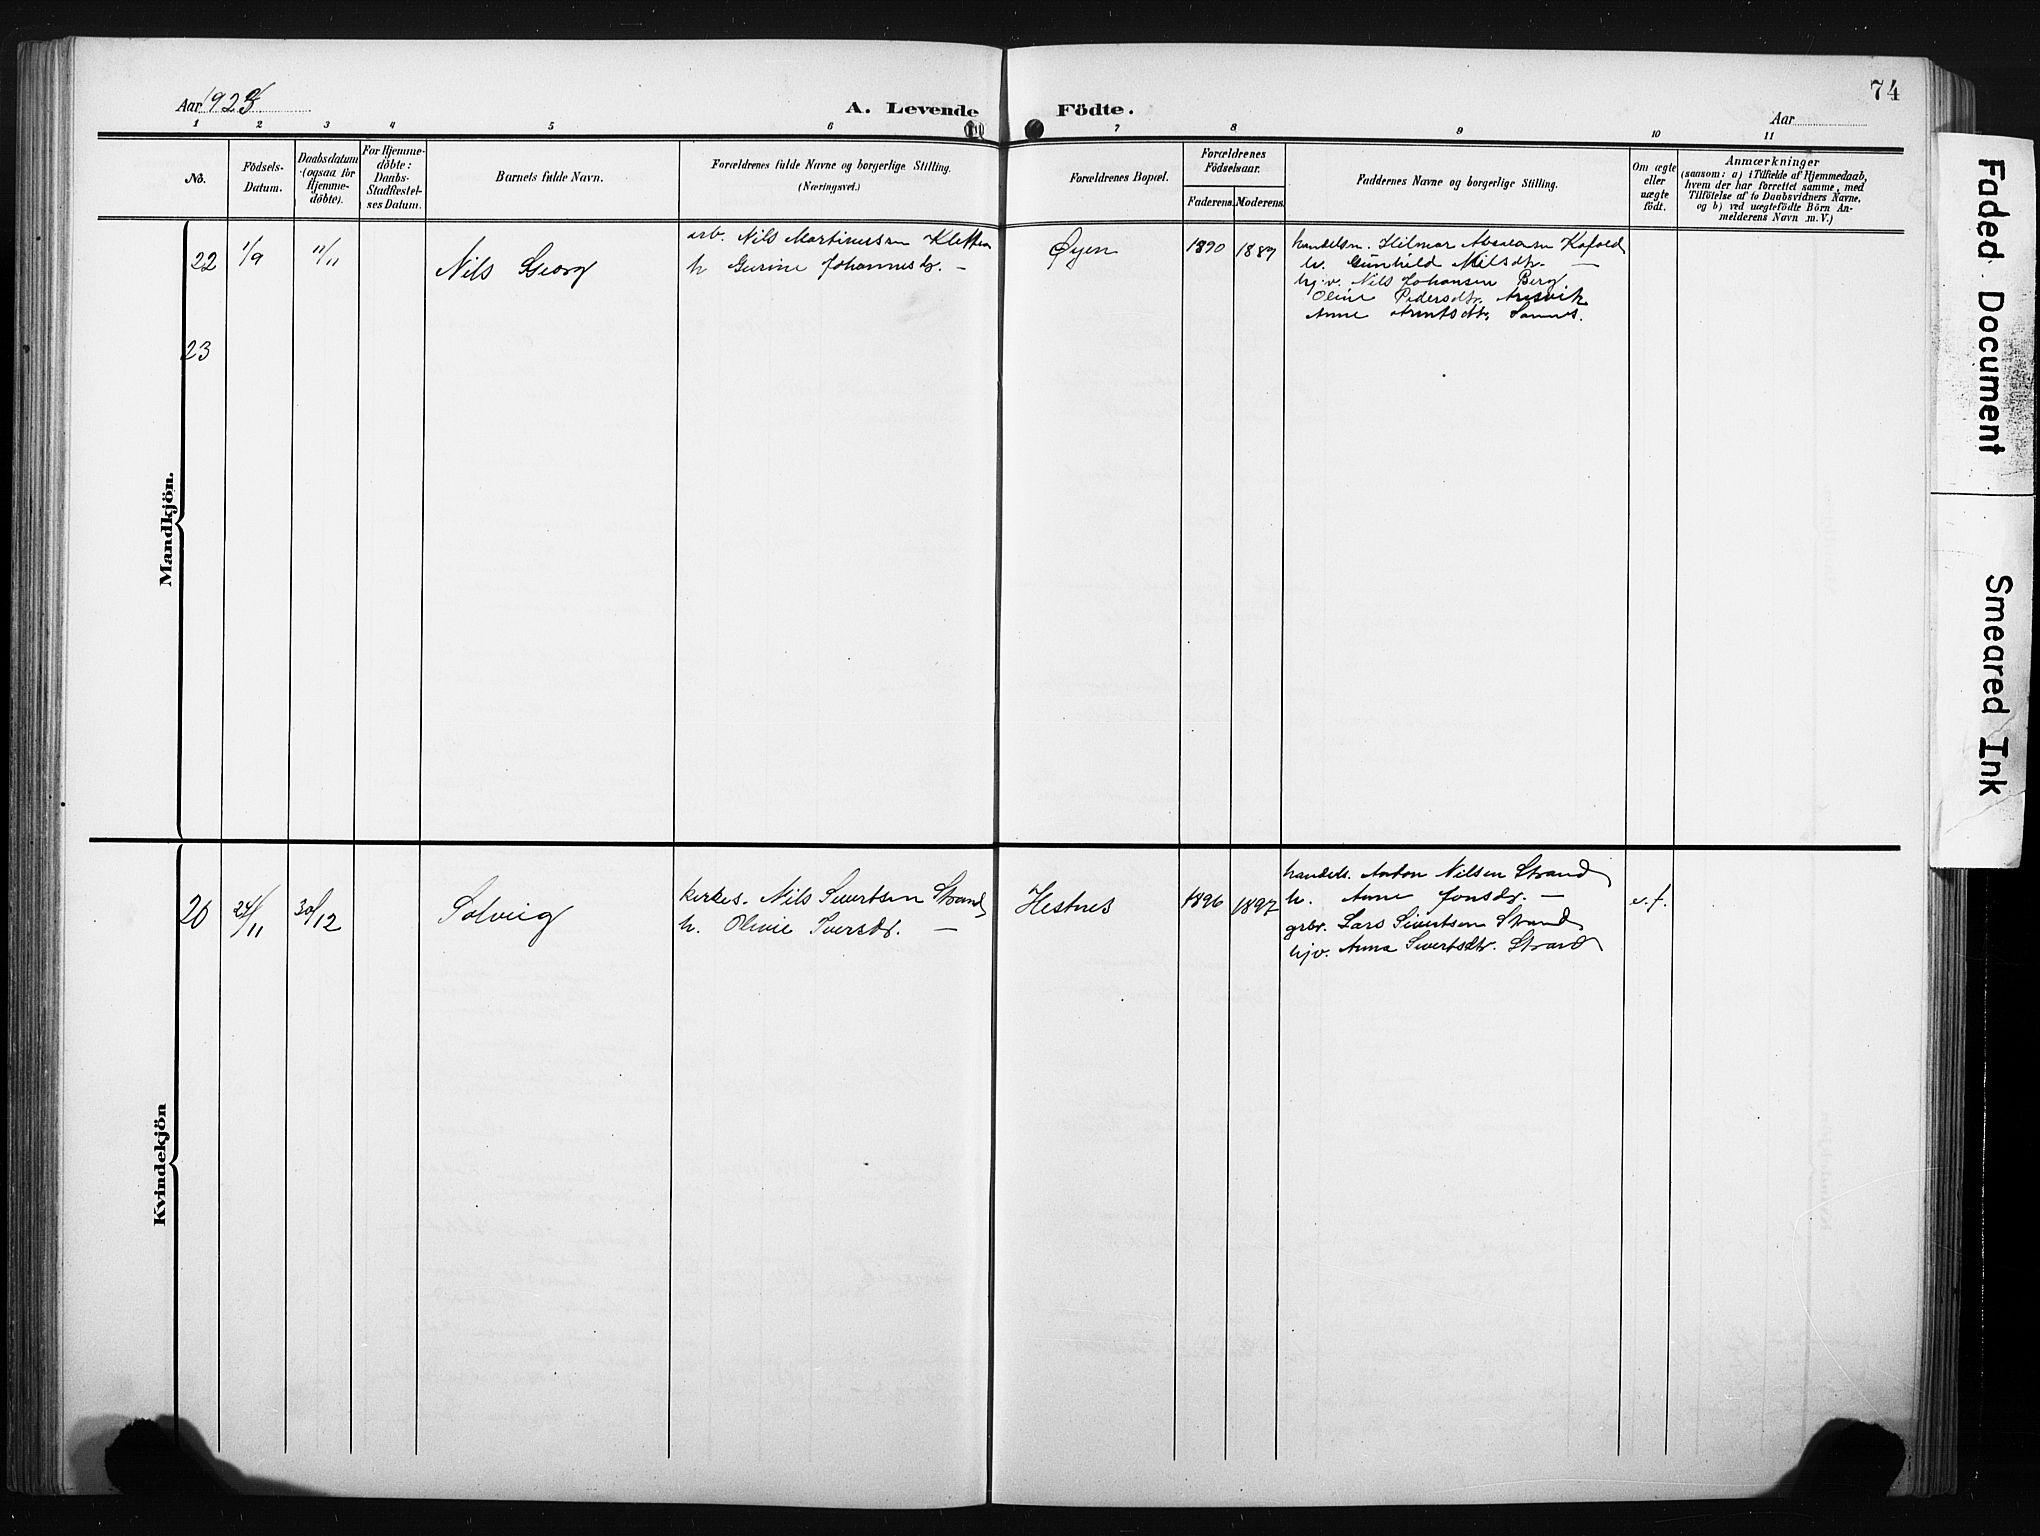 74
Aar 1923
A. Levende Födte.
Aar
1 2 3 4 5 6 7 8 9 10 11
No.
Födsels-Datum.
Daabsdatum (ogsaa för Hjemme-döbte).
For Hjemme-döbte: Daabs-Stadfæstel-ses Datum.
Barnets fulde Navn.
Forældrenes fulde Navne og borgerlige Stilling.
(Næringsvei.)
Forældrenes Bopæl.
Forældrenes Födselsaar.
Faderens. Moderens.
Faddernes Navne og borgerlige Stilling.
Om ægte eller uægte födt.
Anmærkninger
(saasom: a) i Tilfælde af Hjemmedaab,
hvem der har forrettet samme, med
Tilföielse af to Daabsvidners Navne,
og b) ved uægtefödte Börn An-
melderens Navn m. V.)
Mandkjön.
22 1/9 11/11 Nils Georg
arb. Nils Martinussen
h Gurine Johannesd. –
Øyen 1890 1887
handelsm. Hilmar Kofoed
h. Gunhild Nilsdtr. —
Nils Johansen Berg
Oline Pedersdtr. Aresvik
Anne Arntsdtr.
23
Kvindekjön
20 24/11 30/12 Solveig
kirkes. Nils Sivertsen Strand
h. Olivie Iversdr. —
Hestnes 1896 1897
handels. Anton Nilsen Strand
h. Anne Jonsdr. —
grbr. Lars Sivertsen Strand
hjv. Anna Sivertsdtr. Strand
e.f.
Faded Document
Smeared Ink